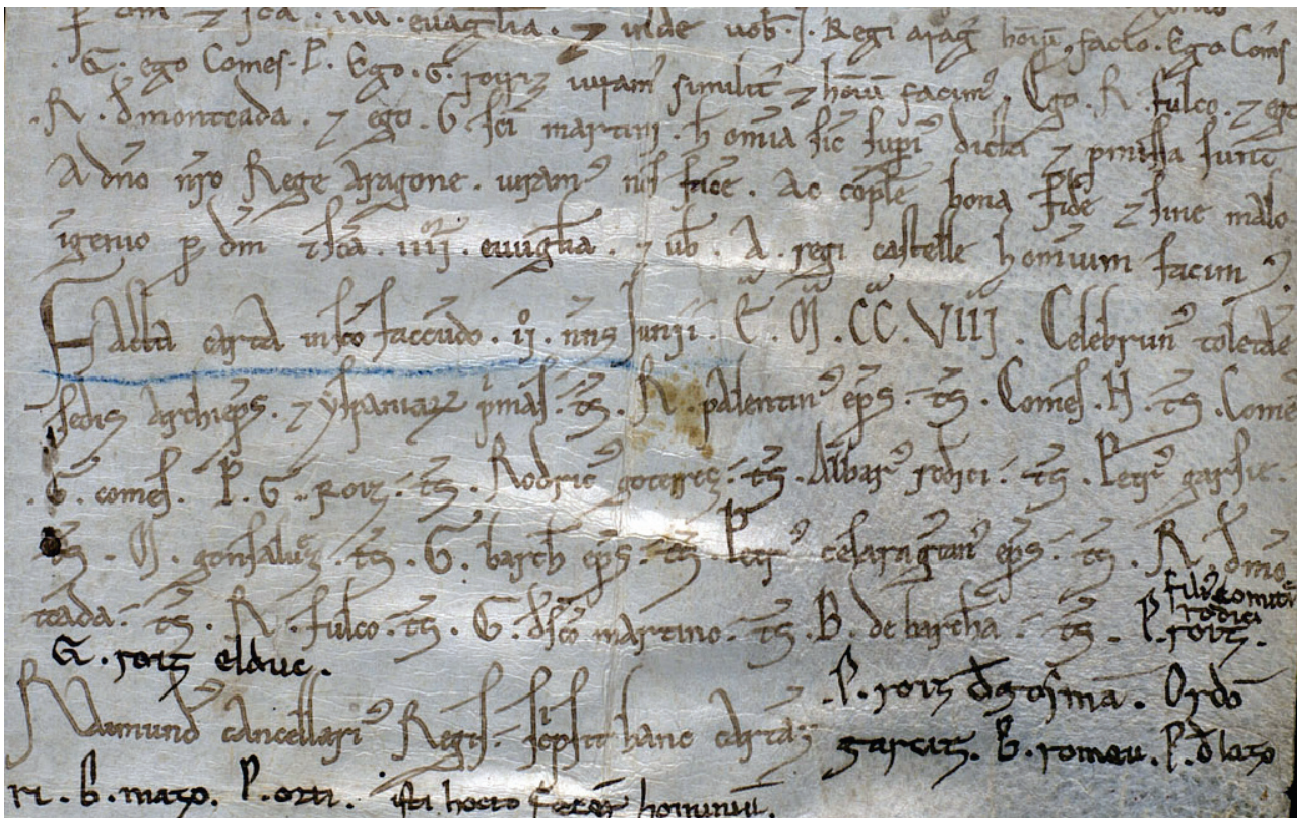 p dm ⁊ sca . iiii . euaglia . ⁊ inde uob . I . Regi arag homi facio . Ego Comes
. G . ego Comes . P . Ego . G . roiz iuram' similit' ⁊ homi facim' . Ego . R . fulco . ⁊ ego
. R . d monteada . ⁊ ego . G . sci martini . h omia sic supi' dicta ⁊ pmissa sunt
A dno nro Rege Aragone . iuram' nos face . Ac cople bona fide ⁊ sine malo
igenio p dm ⁊ sca . iiii or . euuaglia . ⁊ ub . A . regi castelle homium facim' .
Facta carta in sco faccudo . ii o . nns Junii . E . M . CC . VIII . Celebrun' toletae
sedis Archieps . ⁊ yspaniaꝝ pmas . ts . R . palentin' eps . ts . Comes . H . ts . Comes
. G . comes . P . G . roiz . ts . Rodric' goterrez . ts . Albar' rodici . ts . Petr' garsie .
ts . G . gonsaluez . ts . G . barch eps . ts . Petr' cesaragustan' eps . ts . R . d mo
teada . ts . R . fulco . ts . G . d sco martino . ts . B . de barchna . ts . P . roiz .
filius comitis
rodici
G . roiz elduc .
Raimund' cancellari' Regis . scpsit hanc carta
. P . roiz d gosma . Ordo
garciez . B . romeu . P . d lazo
ri . b . mazo . P . orti . isti hocto fecer hominium .